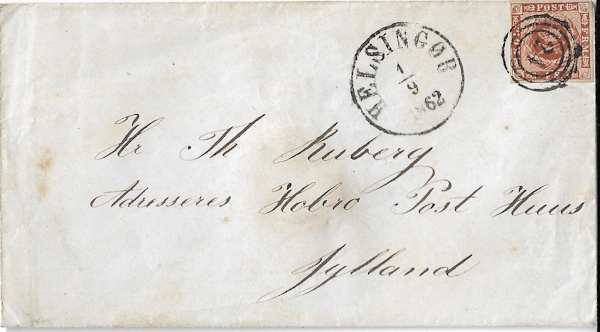 HELSINGØR
1/9
1862
POST
24
Hr Th Ruberg
Adresseres Hobro Post Huus
Jylland